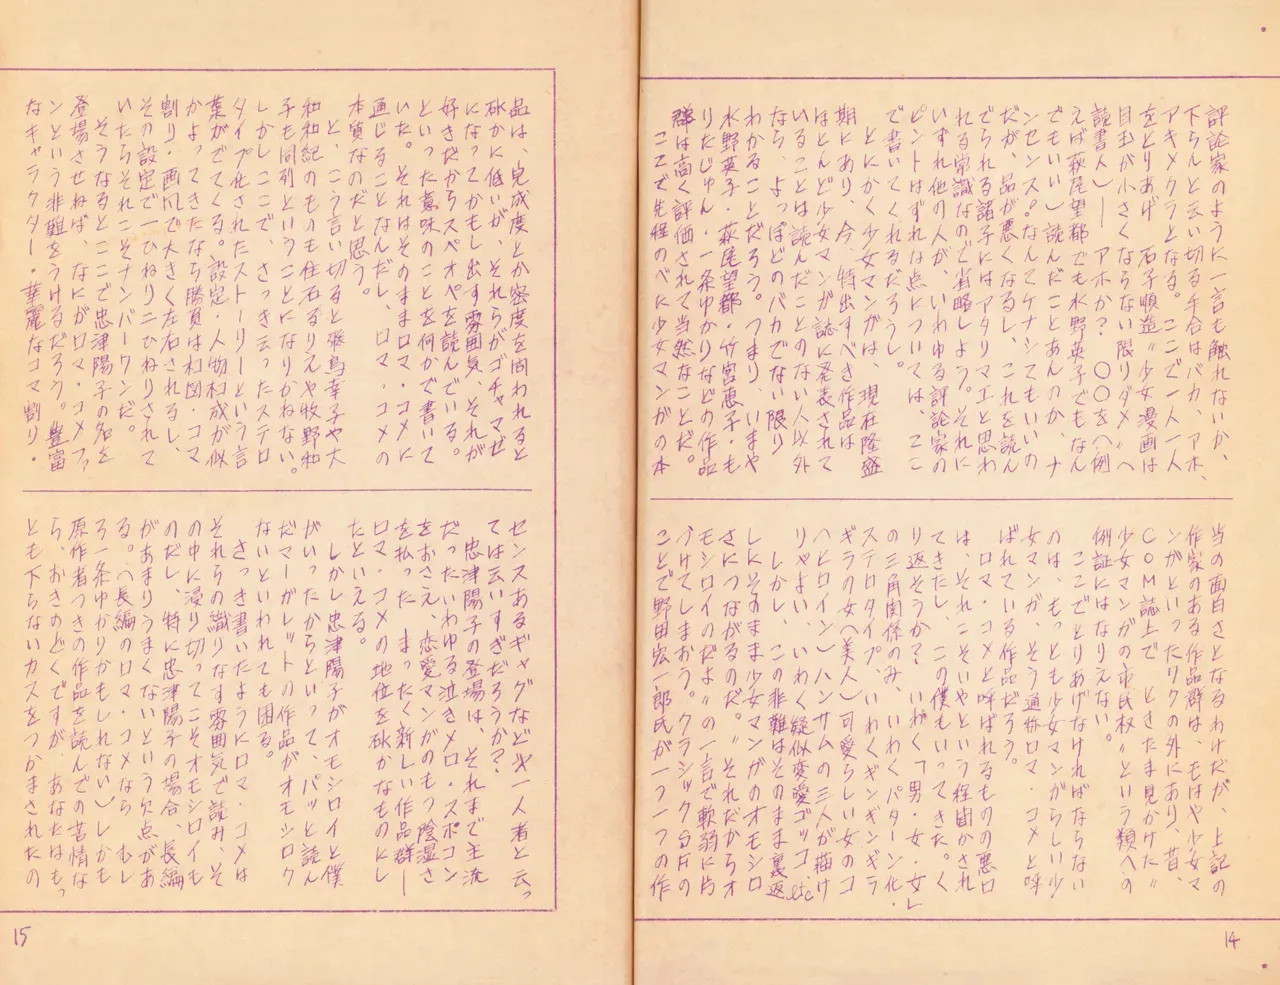 評論家のように一言も触れないか、
下らんと云い切る手合はバカ、アホ、
アキメクラとなる。ここで一人一人
をとりあげ 石子順造〝少女漫画は
目玉が小さくならない限りダメ〟へ
読書人)── アホか? 〇〇を(例
えば萩尾望都でも水野英子でもなん
でもいい)読んだことあんのか、ナ
ンセンス。なんてケナシてもいいの
だが、品が悪くなるし、これを読ん
でられる諸子にはアタリマエと思わ
れる常識なので省略しよう。それに
いずれ他の人が、いわゆる評論家の
ピントはずれな点については、ここ
で書いてくれるだろうし。
とにかく少女マンガは、現在隆盛
期にあり、今、特出すべき作品は
ほとんど少女マンガ誌に発表されて
いることは読んだことのない人以外
なら、よっぽどのバカでない限り
わかることだろう。つまり、いまや
水野英子・萩尾望都・竹宮恵子・も
りたじゅん・一条ゆかりなどの作品
群は高く評価されて当然なことだ。
ここで先程のべた少女マンガの本
当の面白さとなるわけだが、上記の
作家のある作品群は、もはや少女マ
ンガといったワクの外にあり、昔、
COM誌上で ときたま見かけた〝
少女マンガの市民权〟という類への
例証にはなりえない。
ここでとりあげなければならない
のは、もっとも少女マンガらしい少
女マンガ、そう通称ロマ・コメと呼
ばれている作品だろう。
ロマ・コメと呼ばれるものの悪口
は、それこそいやという程聞かされ
てきたし、この僕もいってきた。く
り返そうか? いわく「男・女・女」
の三角関係のみ、いわくパターン化・
ステロタイプ、いわくギンギンギラ
ギラの女(美人)可愛らしい女のコ
(ヒロイン)ハンサムの三人が描け
りゃよい、いわく疑似変愛ゴッコ、etc
しかし、この非難はそのまま裏返
しにそのまま少女マンガのオモシロ
さにつながるのだ。〝それだからオ
モシロイのだよ〟の一言で軟弱に片
づけてしまおう。クラシックSFの
ことで野田宏一郎氏が「一つ一つの作
品は、完成度とか密度を問われると
砍かに低いが、それらがゴチャマぜ
になってかもし出す雰囲気、それが
好きだからスペオペを読んでいる。
といった意味のことを何かで書いて
いた。それはそのままロマ・コメに
通じることなんだし、ロマ・コメの
本質なのだと思う。
と、こう言い切ると飛鳥幸子や大
和和紀のものも住石るりえや牧野和
子も同列ということになりかねない。
しかしここで、さっき云ったステロ
タイプ化されたストーリーという言
葉がでてくる。設定・人物构成が似
かよってきたなら勝負は构図・コマ
割り・画风で大きく左右されるし、
その設定で一ひねり二ひねりされて
いたらそれこそナンバーワンだ。
そうなるとここで忠津陽子の名を
登場させねば、なにがロマ・コメファ
ンという非難をうけるだろう。豊富
なキャラクター・華麗なコマ割り・
センスあるギャグなど才一人者と云っ
ては云いすぎだろうか?
忠津陽子の登場は、それまで主流
だったいわゆる泣きメロ・スポコン
をおさえ、恋愛マンガのもつ陰湿さ
を払った まったく新しい作品群──
ロマ・コメの地位を砍かなものにし
たといえる。
しかし忠津陽子がオモシロイと僕
がいったからといって、パッと読ん
だマーガレットの作品がオモシロク
ないといわれても困る。
さっき書いたようにロマ・コメは
それらの織りなす雰囲気で読み、そ
の中に浸り切ってこそオモシロイも
のだし、特に忠津陽子の場合、長編
があまりうまくないという欠点があ
る。(長編のロマ・コメなら むし
ろ一条ゆかりかもしれない)しかも
原作者つきの作品を読んでの苦情な
ら、おきのどくですが、あなたはもっ
とも下らないカスをつかまされたの
14
15